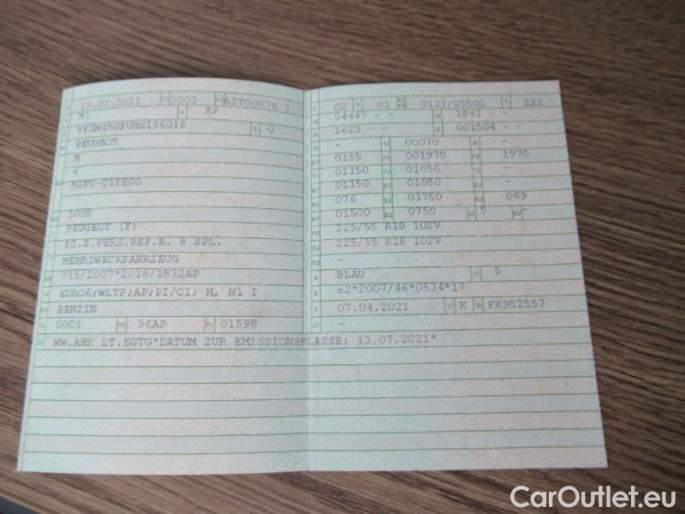 13.07.2021 0003
M1 AF
PEUGEOT
M
4
5GFU-C1PE00
3008
PEUGEOT (F)
FZ.Z.PERS.BEF.B. 8 SPL.
MEHRZWECKFAHRZEUG
715/2007*2018/1832AP
EURO6;WLTP;AP;PI/CI; M, N1 I
BENZIN
0001 36AP 01598
WW.AHK LT.EGTG*DATUM ZUR EMISSIONSKLASSE: 13.07.2021*
02 01 0133/05500 222
04447 - - 1841 - -
1623 - - 001504 - -
- 00070 -
0155 001970 1970
01150 01050 -
01150 01050 -
076 03750 069
01500 0750 5 -
225/55 R18 102V
225/55 R18 102V
-
BLAU 5
e2*2007/46*0534*17
07.04.2021 K FX952557
-
CarOutlet.eu